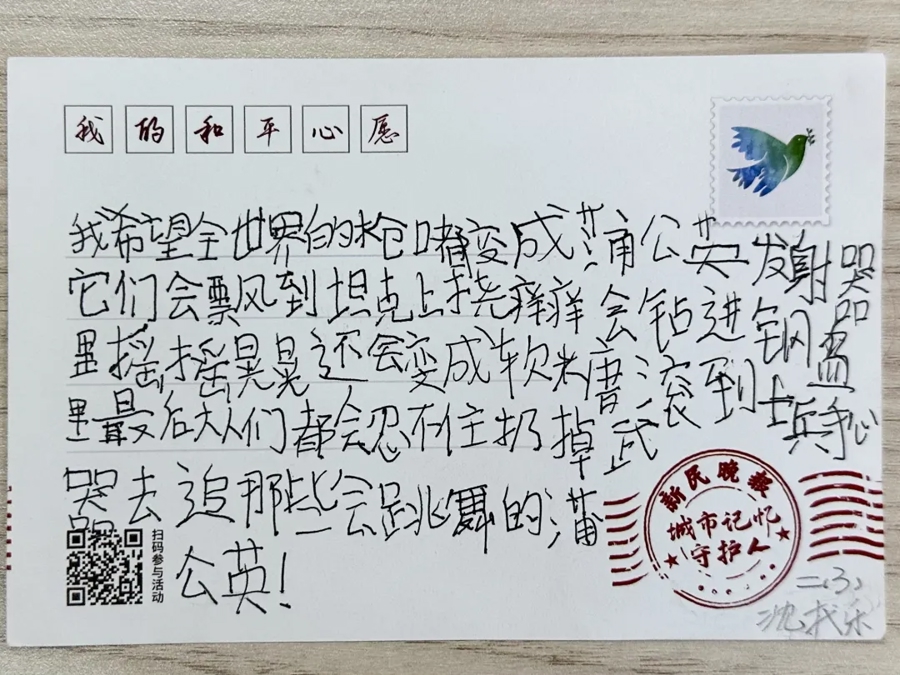 我的和平心愿
我希望全世界的枪都变成蒲公英发射器
它们会飘到坦克上挠痒痒会钻进钢盔
里摇摇晃晃还会变成软糖滚到士兵手心
里最后大人们都会忍不住扔掉武
器去追那些会跳舞的蒲
公英!
扫码参与活动
新民晚报
城市记忆
守护人
二(3)